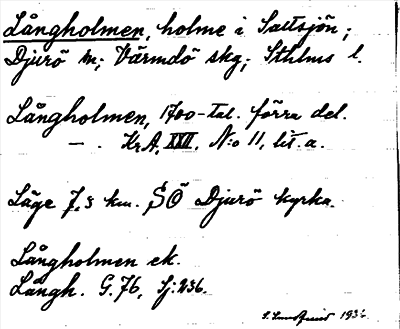 Långholmen, holme i Saltsjön;
Djurö sn; Värmdö skg; Sthlms l.
Långholmen, 1700-tal. förra del.
— . KrA, XXII, N:o 11, lit. a.
Läge 7,5 km. SÖ Djurö kyrka.
Långholmen ek.
Långh. G.76, Sj:236.